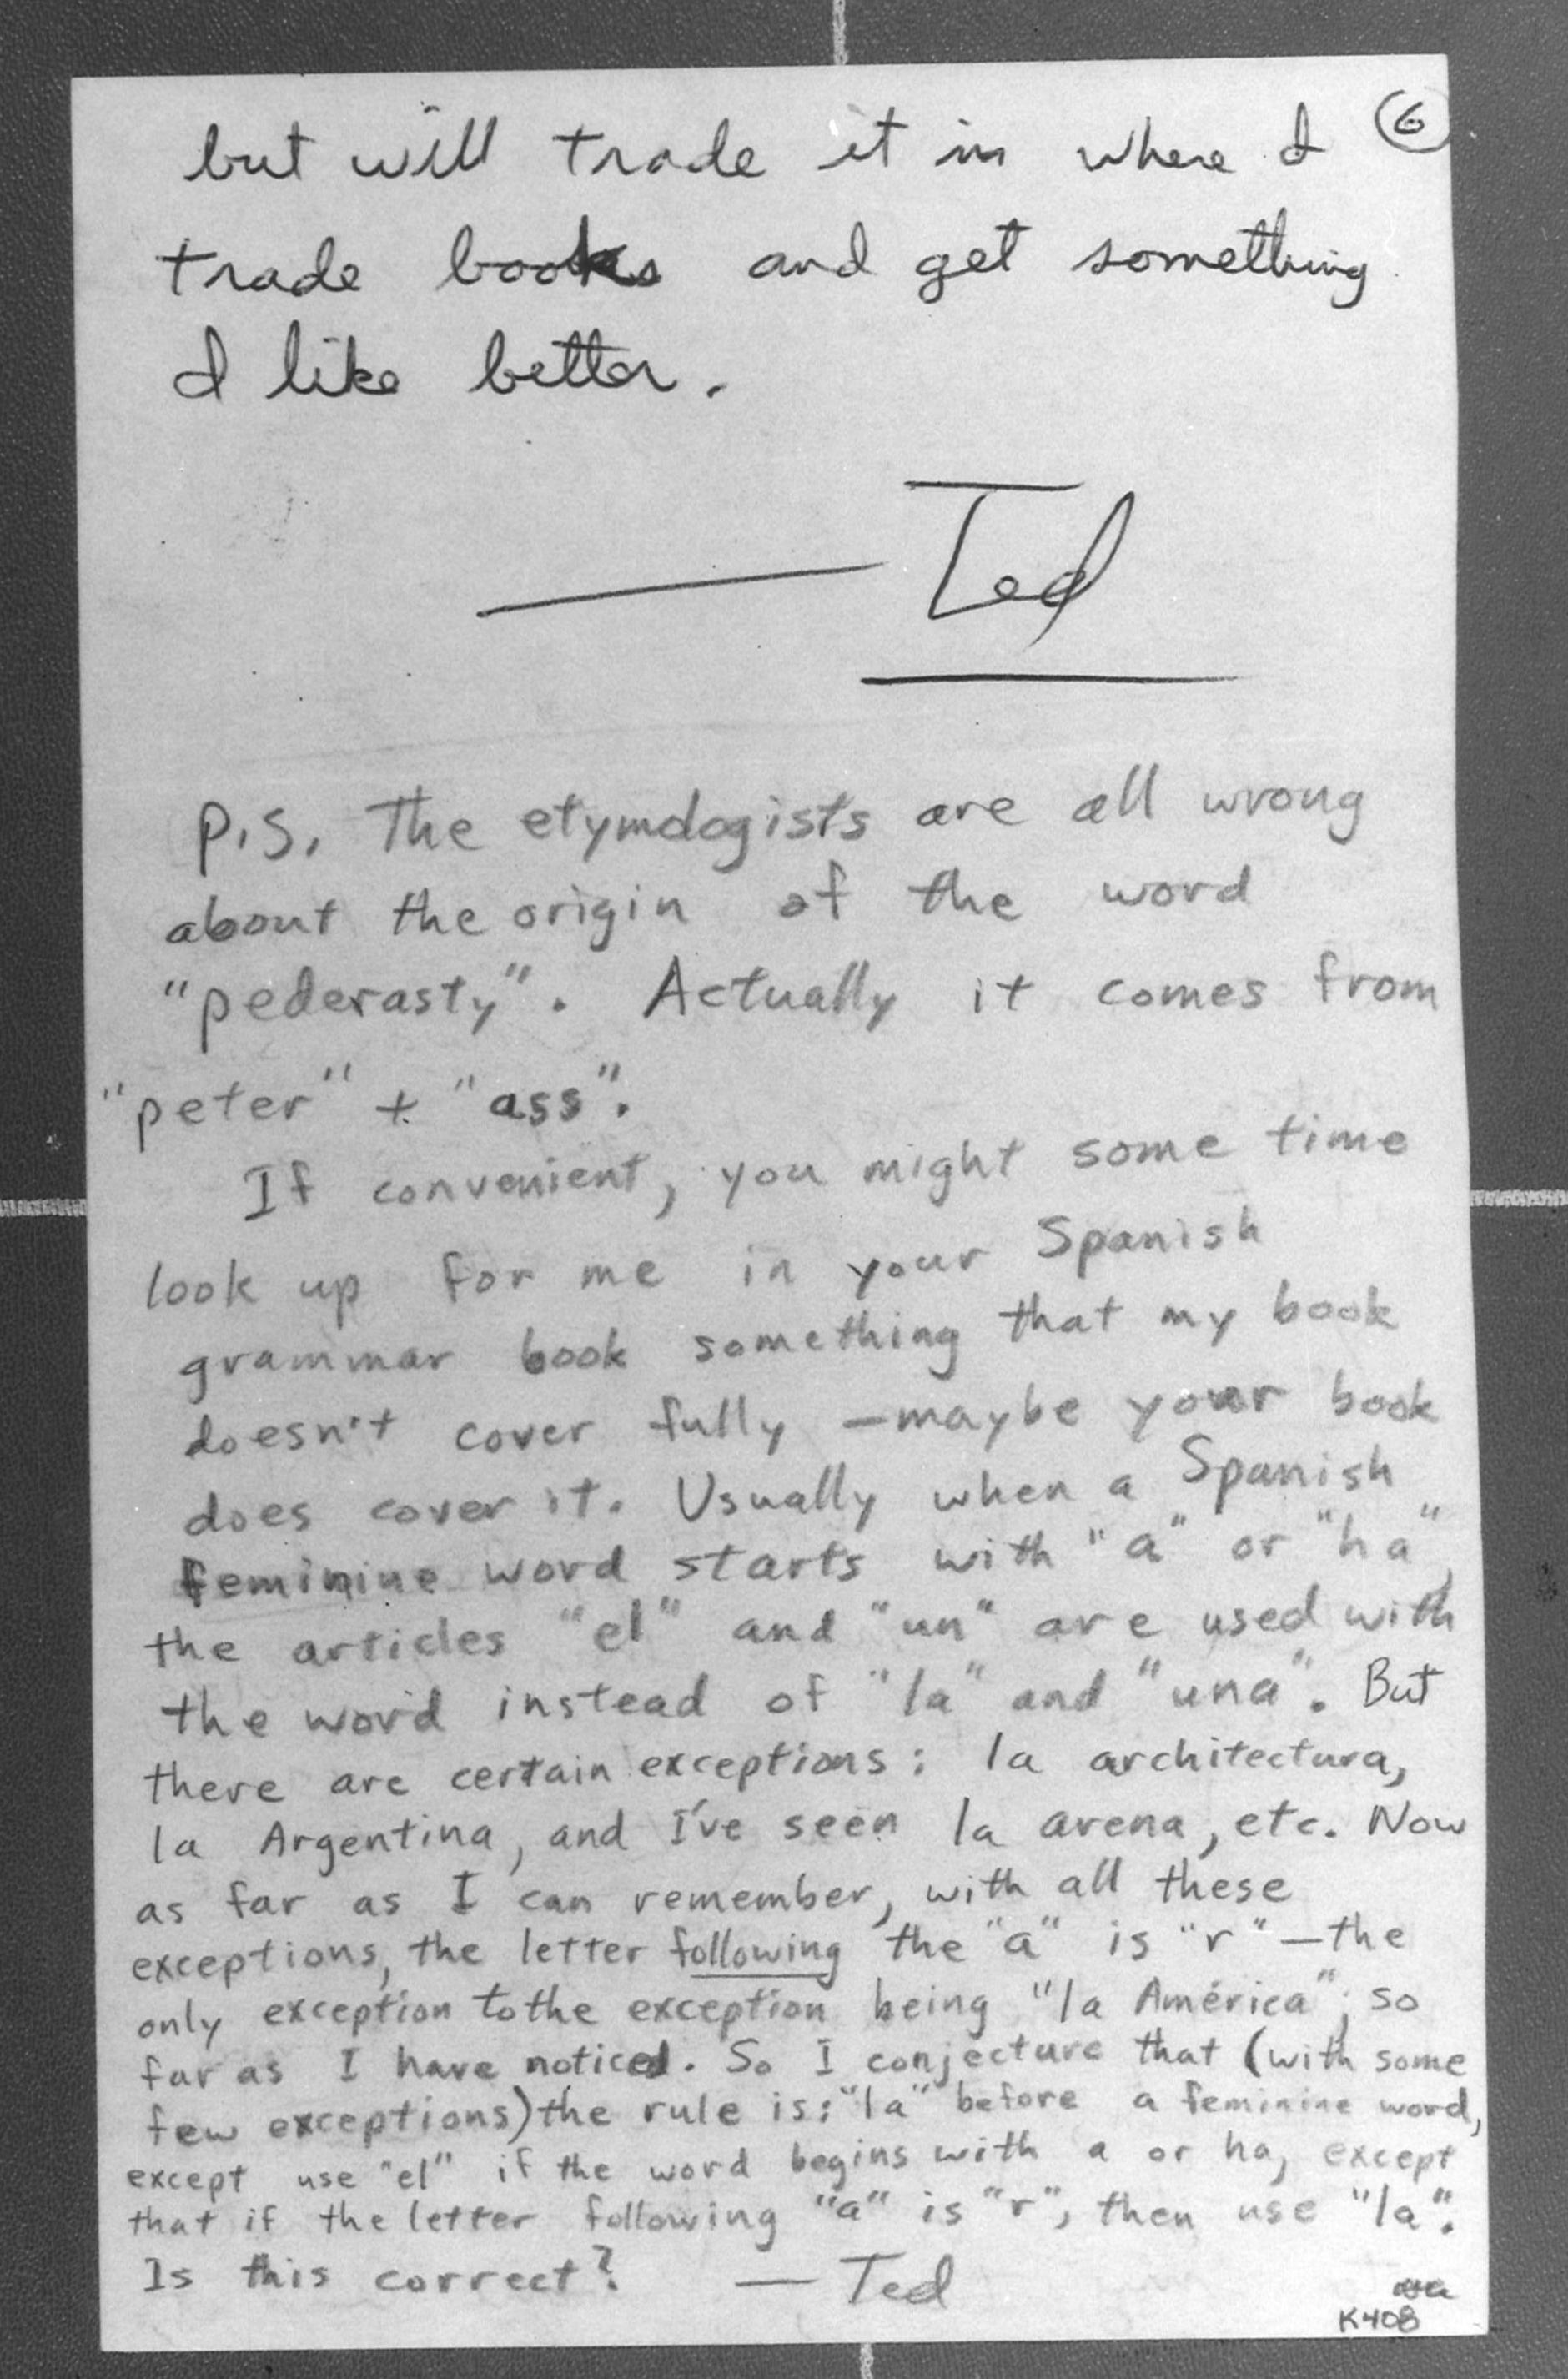 6
but will trade it in where I
trade books and get something
I like better.
— Ted
P.S. The etymologists are all wrong
about the origin of the word
"pederasty". Actually it comes from
"peter" + "ass".
If convenient, you might some time
look up for me in your Spanish
grammar book something that my book
doesn't cover fully — maybe your book
does cover it. Usually when a Spanish
feminine word starts with "a" or "ha",
the articles "el" and "un" are used with
the word instead of "la" and "una". But
there are certain exceptions: la architectura,
la Argentina, and I've seen la arena, etc. Now
as far as I can remember, with all these
exceptions, the letter following the "a" is "r" — the
only exception to the exception being "la América", so
far as I have noticed. So I conjecture that (with some
few exceptions) the rule is: "la" before a feminine word,
except use "el" if the word begins with a or ha, except
that if the letter following "a" is "r", then use "la".
Is this correct? — Ted
K408